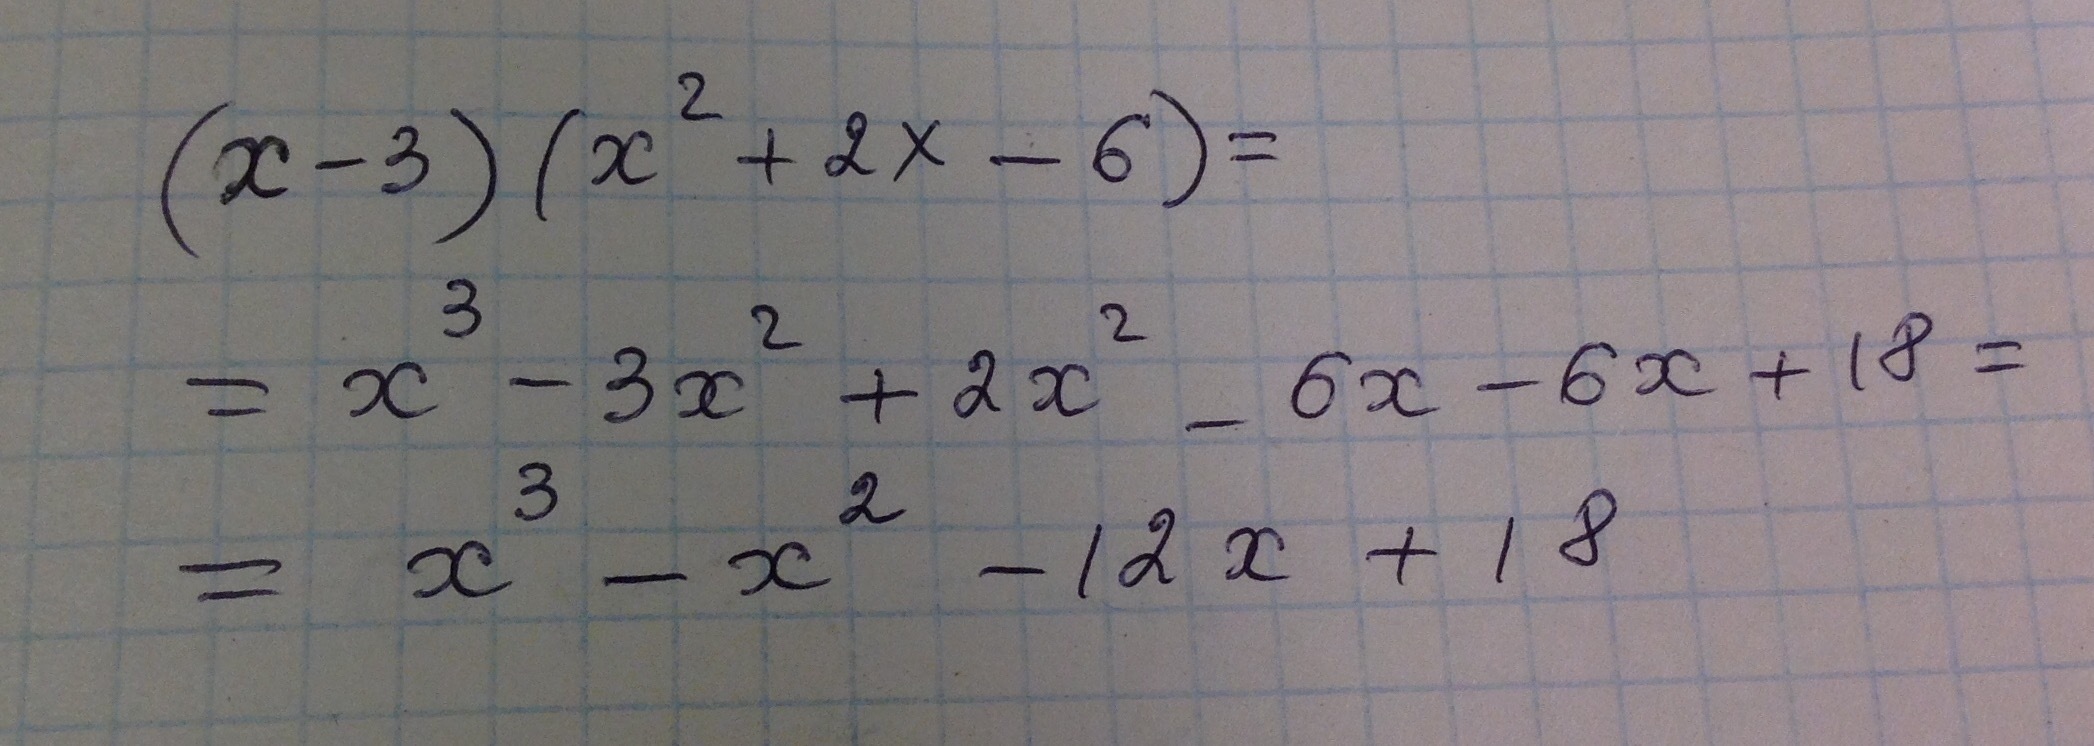 (x-3)(x²+2x-6)=
= x³-3x²+2x²-6x-6x+18=
= x³-x²-12x+18